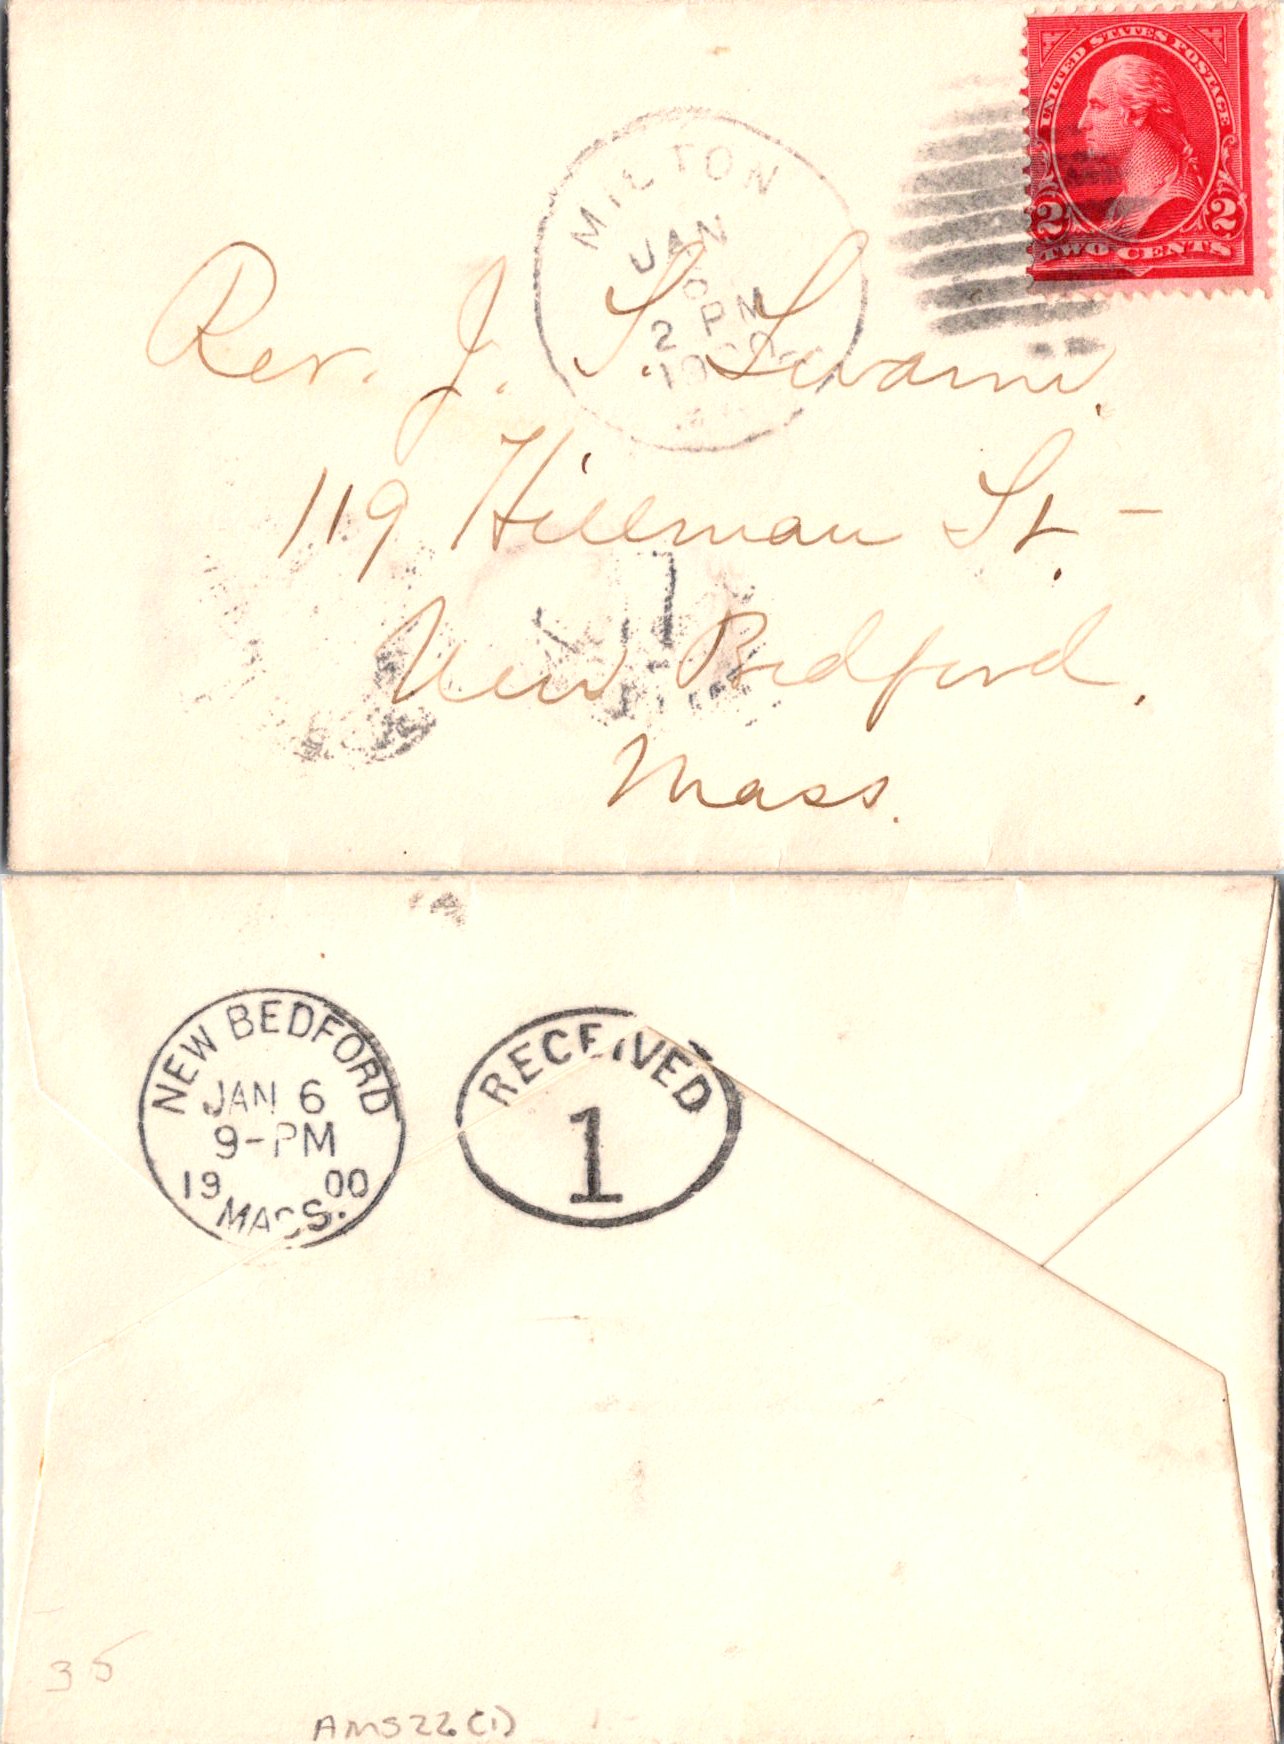 UNITED STATES POSTAGE
2 2
TWO CENTS
MILTON
JAN
2 PM
1900
Rev. J. S. Swann,
119 Hillman St. -
New Bedford,
Mass.
NEW BEDFORD
JAN 6
9-PM
19 00
MASS.
RECEIVED
1
35
AMS22(1)